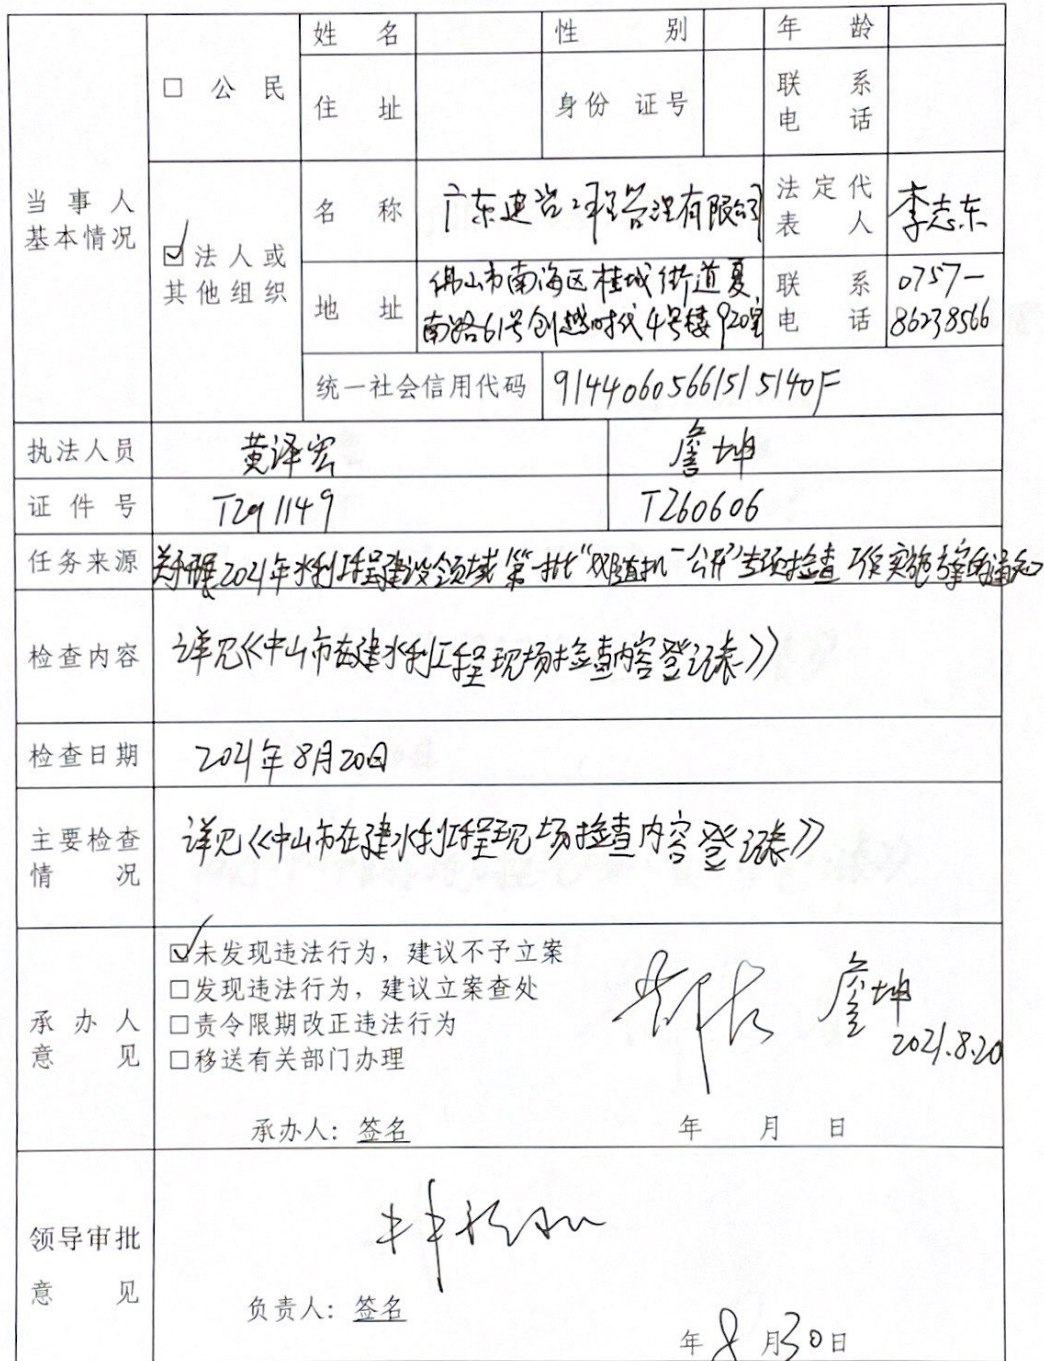 姓 名 性 别 年 龄
□ 公 民
住 址 身份 证号 联 系
电 话
当 事 人
基本情况
☑法人或
其他组织
名 称 广东建岩工程管理有限公司 法定代
表 人 李志东
地 址 佛山市南海区桂城街道夏
南路61号创越时代4号楼920室
联 系
电 话
0757-
86238566
统一社会信用代码 91440605661515140F
执法人员 黄泽宏 詹坤
证 件 号 T291149 T260606
任务来源 关于开展2021年水利工程建设领域第一批“双随机一公开”专项检查工作实施方案的通知
检查内容 详见《中山市在建水利工程现场检查内容登记表》
检查日期 2021年8月20日
主要检查
情 况 详见《中山市在建水利工程现场检查内容登记表》
承 办 人
意 见
☑未发现违法行为,建议不予立案
□发现违法行为,建议立案查处
□责令限期改正违法行为
□移送有关部门办理
詹坤
2021.8.20
承办人:签名 年 月 日
领导审批
意 见
负责人:签名
年8月30日